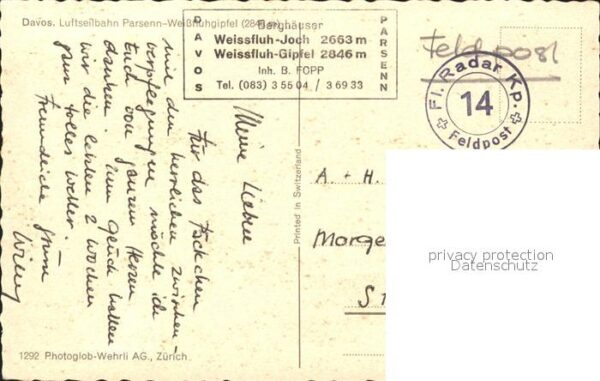 Davos. Luftseilbahn Parsenn-Weißfluhgipfel (2844 m)
DAVOS
Berghäuser
Weissfluh-Joch 2663 m
Weissfluh-Gipfel 2846 m
Inh. B. FOPP
Tel. (083) 3 55 04 / 3 69 33
PARSENN
Feldpost
Fl. Radar Kp.
14
Feldpost
Meine Lieben
Für das Päckchen
mit den herrlichen Zwischen-
verpflegungen möchte ich
Euch von ganzem Herzen
danken. Zum Glück hatten
wir die letzten 2 Wochen
ganz tolles Wetter.
Freundliche Grüsse
Willy
Printed in Switzerland
A + H.
Morge
S
privacy protection
Datenschutz
1292 Photoglob-Wehrli AG., Zürich